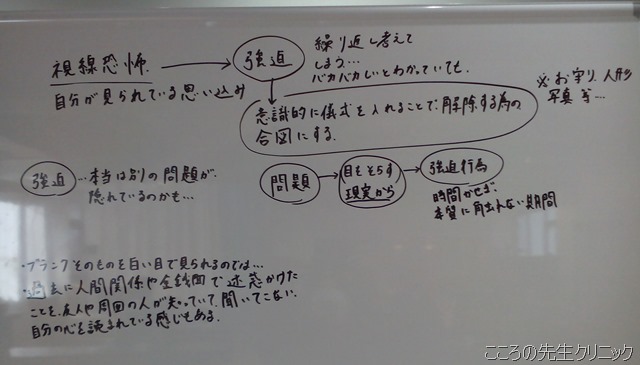 視線恐怖
自分が見られている思い込み
強迫
繰り返し考えて
しまう…
バカバカしいとわかっていても。
意識的に儀式を入れることで、解除する為の
合図にする。
※お守り、人形
写真 等…
強迫 …本当は別の問題が、
隠れているのかも…
問題
目をそらす
現実から
強迫行為
時間かせぎ
本質に触れない期間
・ブランクそのものを白い目で見られるのでは…
・過去に人間関係や金銭面で迷惑かけた
ことを、友人や周囲の人が知っていて、聞いてこない。
自分の心を読まれている感じもある。
こころの先生クリニック